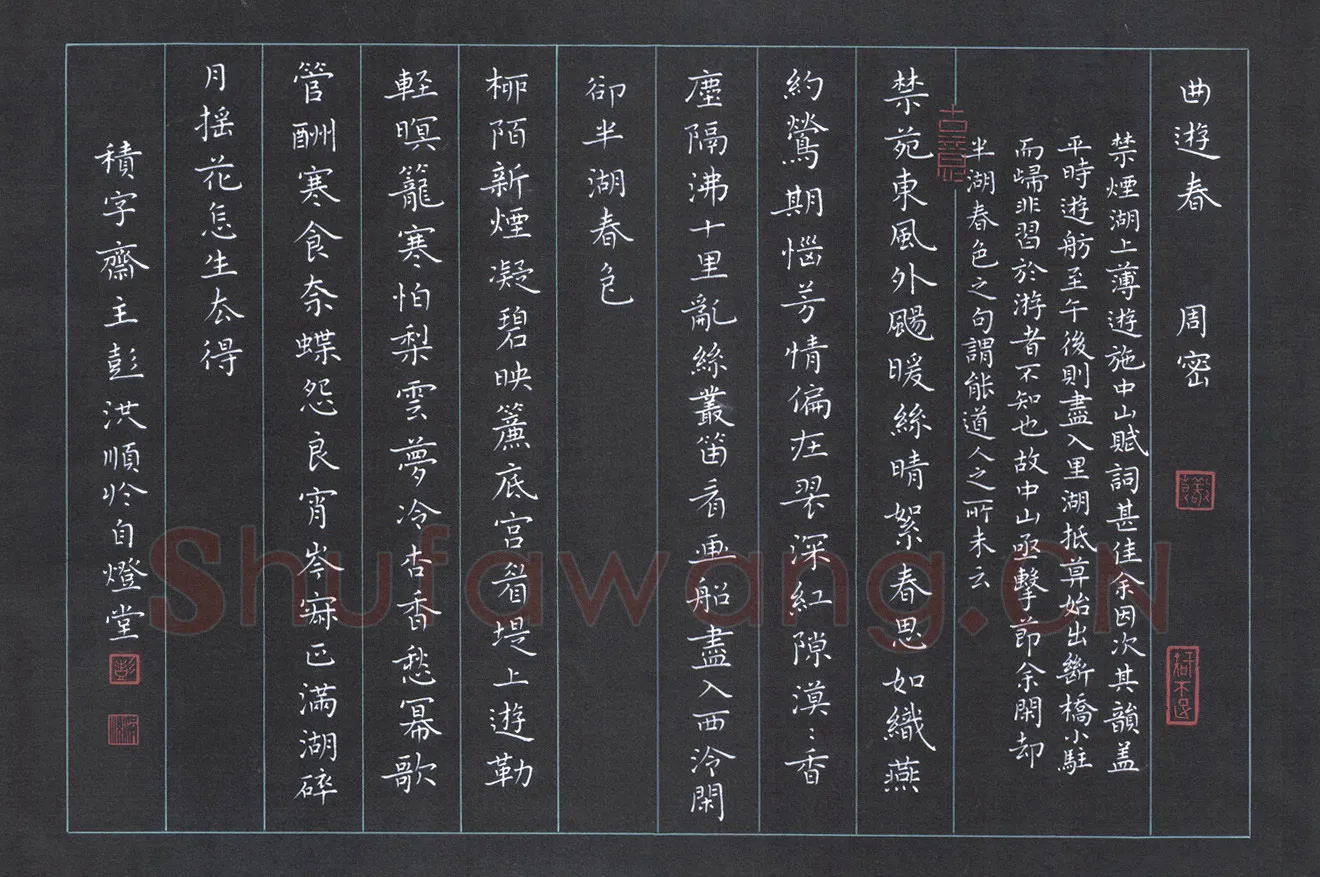 曲遊春 周密
禁煙湖上薄遊施中山賦詞甚佳余因次其韻盖
平時遊舫至午後則盡入里湖抵暮始出斷橋小駐
而歸非習於游者不知也故中山亟擊節余閑却
半湖春色之句謂能道人之所未云
禁苑東風外颺暖絲晴絮春思如織燕
約鶯期惱芳情偏在翠深紅隙漠〻香
塵隔沸十里亂絲叢笛看画船盡入西泠閑
卻半湖春色
柳陌新煙凝碧映簾底宫眉堤上遊勒
輕暝籠寒怕梨雲夢冷杏香愁冪歌
管酬寒食奈蝶怨良宵岑寂正滿湖碎
月摇花怎生去得
積字齋主彭洪順於自燈堂
Shufawang.CN